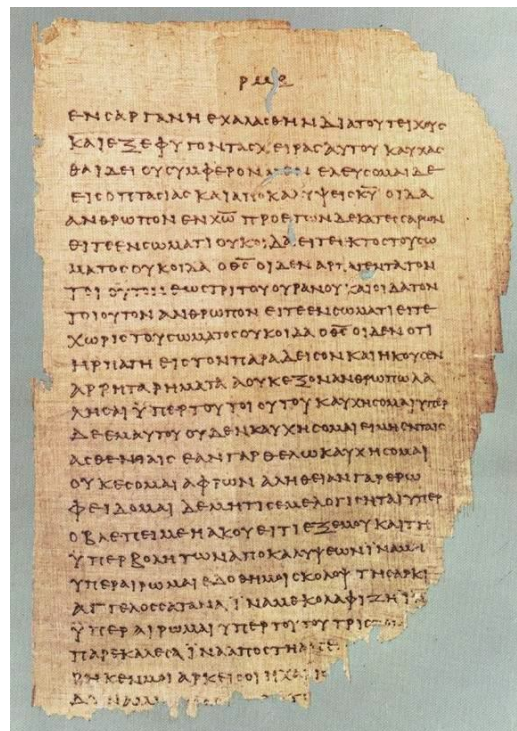 ΕΝ ΣΑΡΓΑΝΗ ΕΧΑΛΑΣΘΗΝ ΔΙΑ ΤΟΥ ΤΕΙΧΟΥΣ
ΚΑΙ ΕΞΕΦΥΓΟΝ ΤΑΣ ΧΕΙΡΑΣ ΑΥΤΟΥ ΚΑΥΧΑΣ
ΘΑΙ ΔΕΙ ΟΥ ΣΥΜΦΕΡΟΝ ΜΕΝ ΕΛΕΥΣΟΜΑΙ ΔΕ
ΕΙΣ ΟΠΤΑΣΙΑΣ ΚΑΙ ΑΠΟΚΑΛΥΨΕΙΣ Κ̅Υ̅ ΟΙΔΑ
ΑΝΘΡΩΠΟΝ ΕΝ Χ̅Ω̅ ΠΡΟ ΕΤΩΝ ΔΕΚΑΤΕΣΣΑΡΩΝ
ΕΙΤΕ ΕΝ ΣΩΜΑΤΙ ΟΥΚ ΟΙΔΑ ΕΙΤΕ ΕΚΤΟΣ ΤΟΥ ΣΩ
ΜΑΤΟΣ ΟΥΚ ΟΙΔΑ Ο Θ̅Σ̅ ΟΙΔΕΝ ΑΡΠΑΓΕΝΤΑ ΤΟΝ
ΤΟΙΟΥΤΟΝ ΕΩΣ ΤΡΙΤΟΥ ΟΥΡΑΝΟΥ ΚΑΙ ΟΙΔΑ ΤΟΝ
ΤΟΙΟΥΤΟΝ ΑΝΘΡΩΠΟΝ ΕΙΤΕ ΕΝ ΣΩΜΑΤΙ ΕΙΤΕ
ΧΩΡΙΣ ΤΟΥ ΣΩΜΑΤΟΣ ΟΥΚ ΟΙΔΑ Ο Θ̅Σ̅ ΟΙΔΕΝ ΟΤΙ
ΗΡΠΑΓΗ ΕΙΣ ΤΟΝ ΠΑΡΑΔΕΙΣΟΝ ΚΑΙ ΗΚΟΥΣΕΝ
ΑΡΡΗΤΑ ΡΗΜΑΤΑ Α ΟΥΚ ΕΞΟΝ ΑΝΘΡΩΠΩ ΛΑ
ΛΗΣΑΙ ΫΠΕΡ ΤΟΥ ΤΟΙΟΥΤΟΥ ΚΑΥΧΗΣΟΜΑΙ ΥΠΕΡ
ΔΕ ΕΜΑΥΤΟΥ ΟΥΔΕΝ ΚΑΥΧΗΣΟΜΑΙ ΕΙ ΜΗ ΕΝ ΤΑΙΣ
ΑΣΘΕΝΕΙΑΙΣ ΕΑΝ ΓΑΡ ΘΕΛΩ ΚΑΥΧΗΣΟΜΑΙ
ΟΥΚ ΕΣΟΜΑΙ ΑΦΡΩΝ ΑΛΗΘΕΙΑΝ ΓΑΡ ΕΡΩ
ΦΕΙΔΟΜΑΙ ΔΕ ΜΗ ΤΙΣ ΕΜΕ ΛΟΓΙΣΗΤΑΙ ΥΠΕΡ
Ο ΒΛΕΠΕΙ ΜΕ Η ΑΚΟΥΕΙ ΤΙ ΕΞ ΕΜΟΥ ΚΑΙ ΤΗ
ΫΠΕΡΒΟΛΗ ΤΩΝ ΑΠΟΚΑΛΥΨΕΩΝ ΪΝΑ ΜΗ
ΥΠΕΡΑΙΡΩΜΑΙ ΕΔΟΘΗ ΜΟΙ ΣΚΟΛΟΨ ΤΗ ΣΑΡΚΙ
ΑΓΓΕΛΟΣ ΣΑΤΑΝΑ ΪΝΑ ΜΕ ΚΟΛΑΦΙΖΗ ΪΝΑ
ΫΠΕΡΑΙΡΩΜΑΙ ΥΠΕΡ ΤΟΥΤΟΥ ΤΡΙΣ
ΠΑΡΕΚΑΛΕΣΑ ΪΝΑ ΑΠΟΣΤΗ
ΡΗΚΕΝ ΜΟΙ ΑΡΚΕΙ ΣΟΙ Η ΧΑΡΙΣ